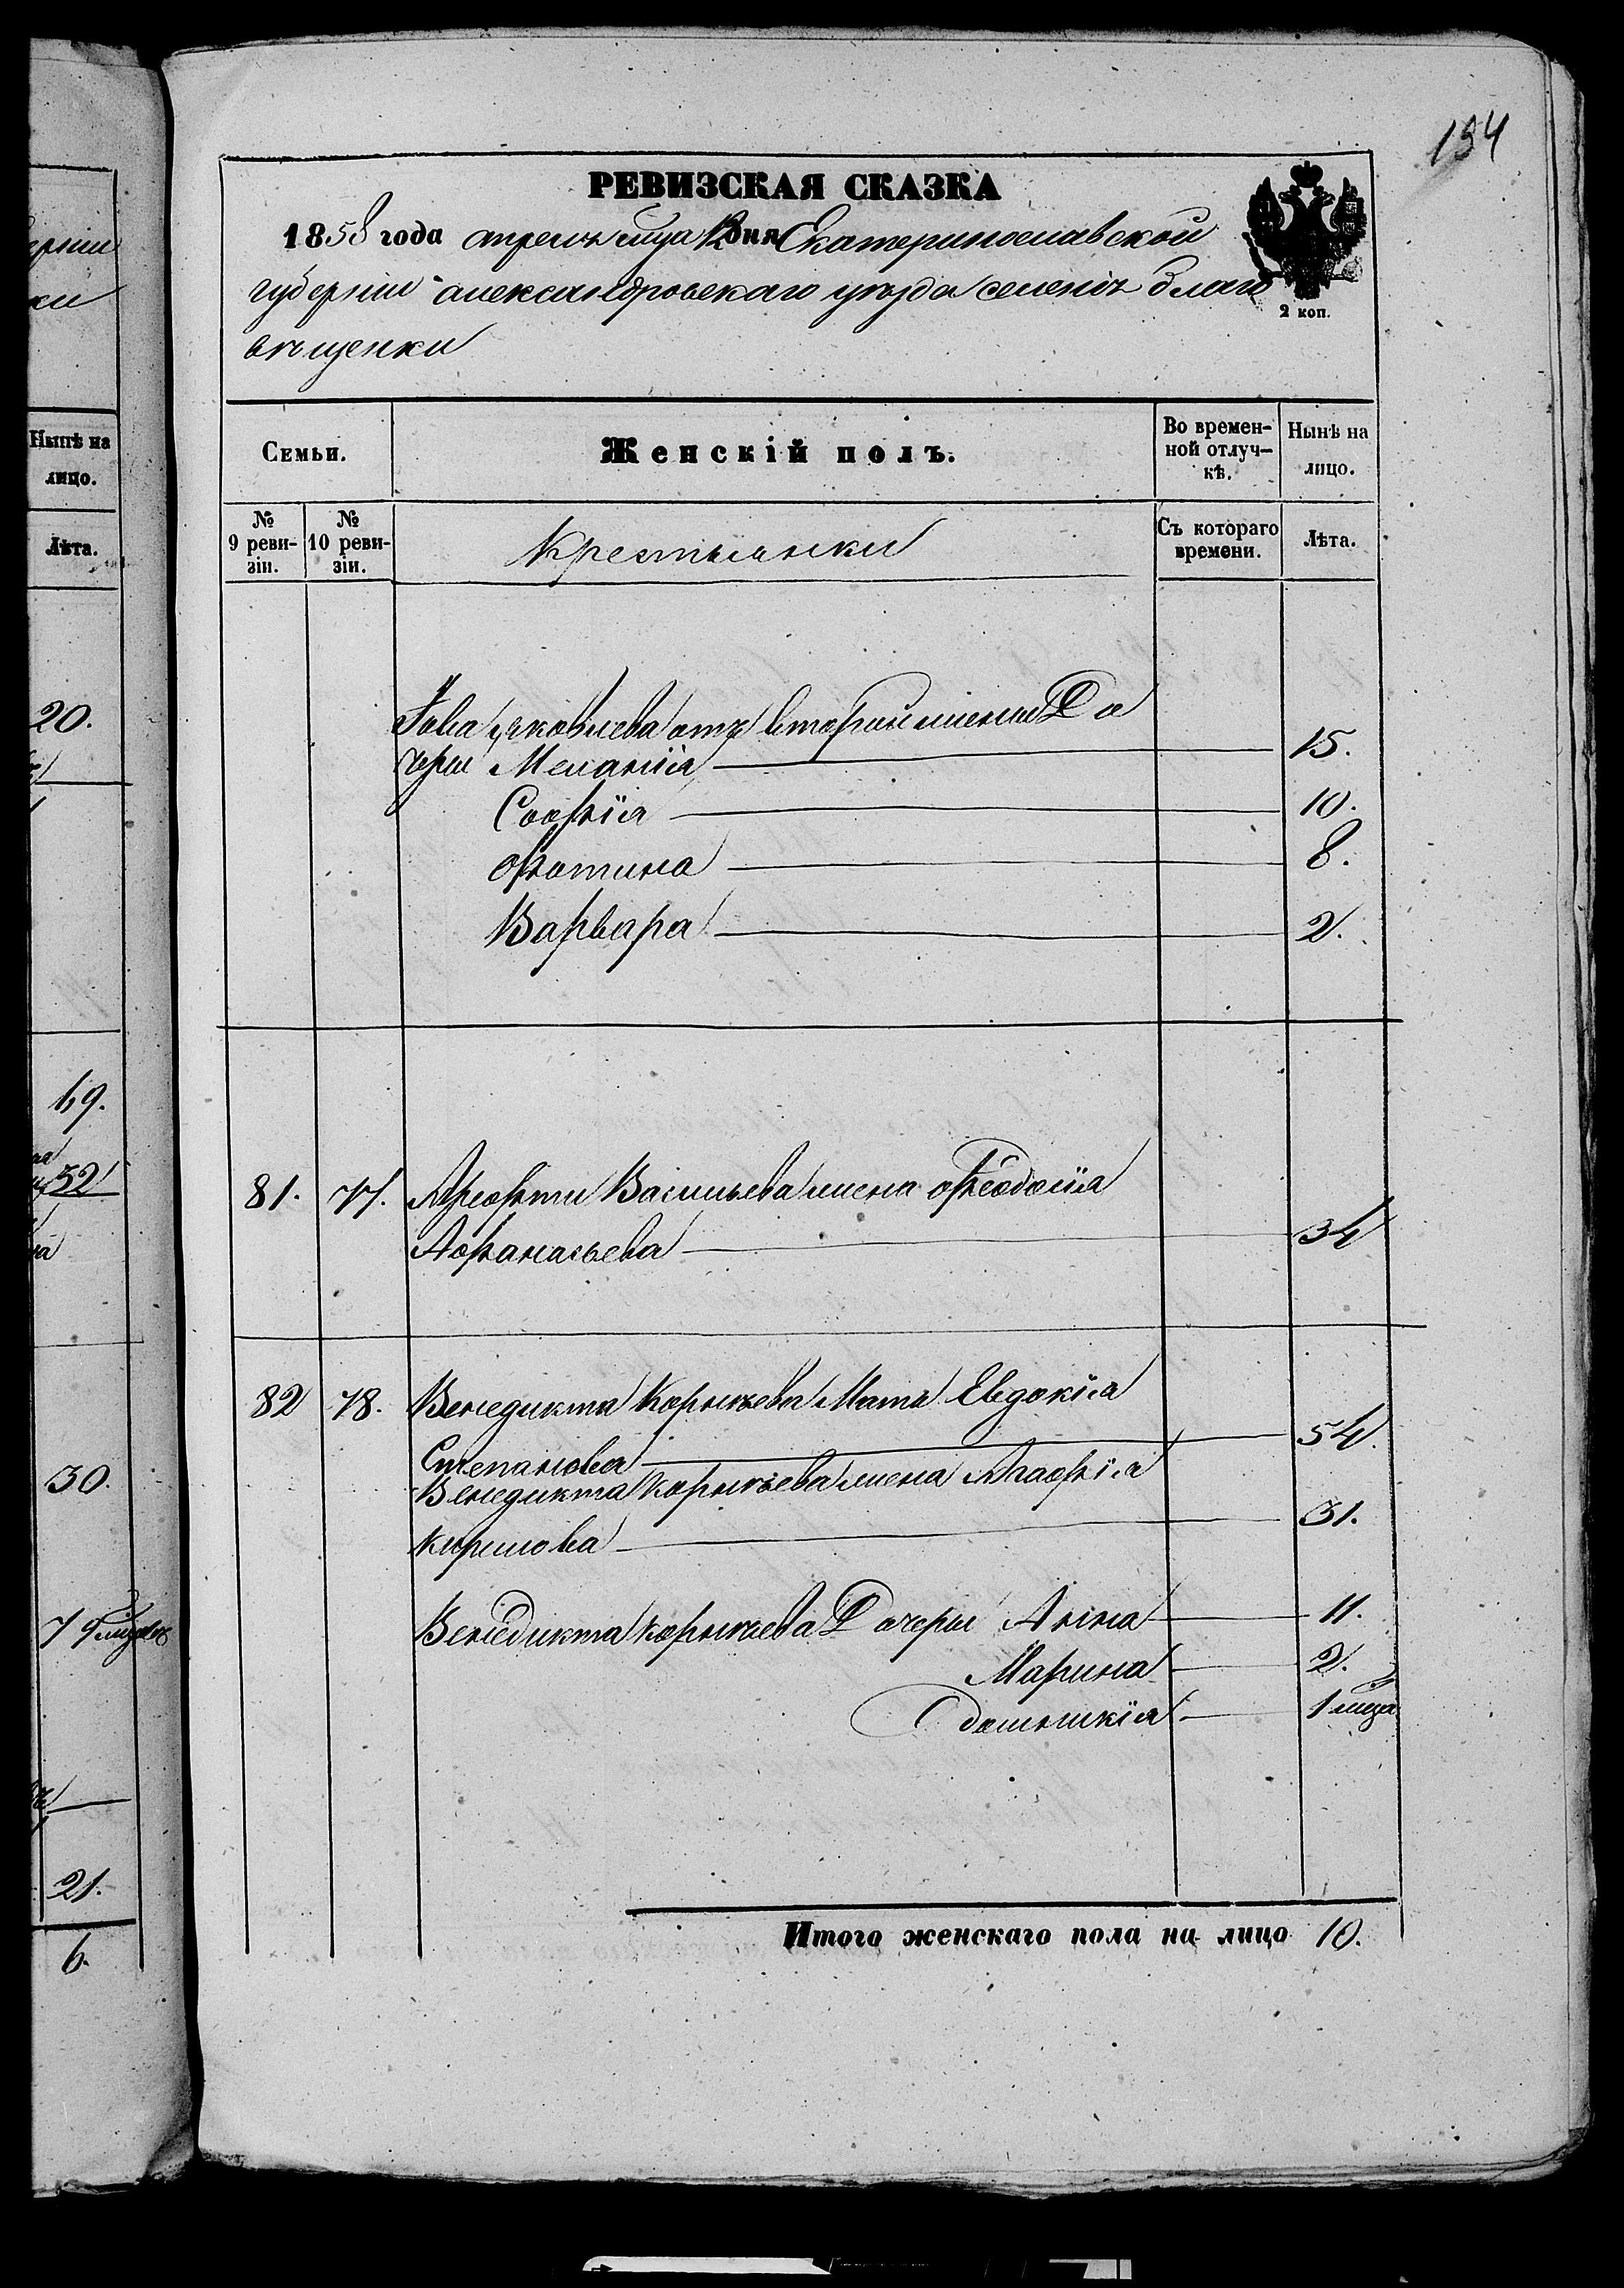 154
РЕВИЗСКАЯ СКАЗКА
1858 года апреля мца 12 дня Екатеринославской
губернии александровскаго уѣзда селенiя Благо
вѣщенки
2 коп.
Семьи.
Женскій полъ.
Во времен-
ной отлуч-
кѣ.
Нынѣ на
лицо.
№
9 реви-
зіи.
№
10 реви-
зіи.
Крестьянки
Съ котораго
времени.
Лѣта.
Яковлева отъ второй жены До
чери Меланiя 15.
Софiя 10.
фотина 8.
Варвара 2.
81. 77. Васильева жена феодосiя
Афанасьева 34
82 78. Венедикта Корнѣева Мать Евдокiя
Степанова 54.
Венедикта Корнѣева жена Агафiя
Кирилова 31.
Венедикта Корнѣева Дочери Анна 11.
Марина 2.
1 меца
Итого женскаго пола на лицо 10.
ерніи
ки
Нынѣ на
лицо.
Лѣта.
20.
69.
52
30.
21.
6.